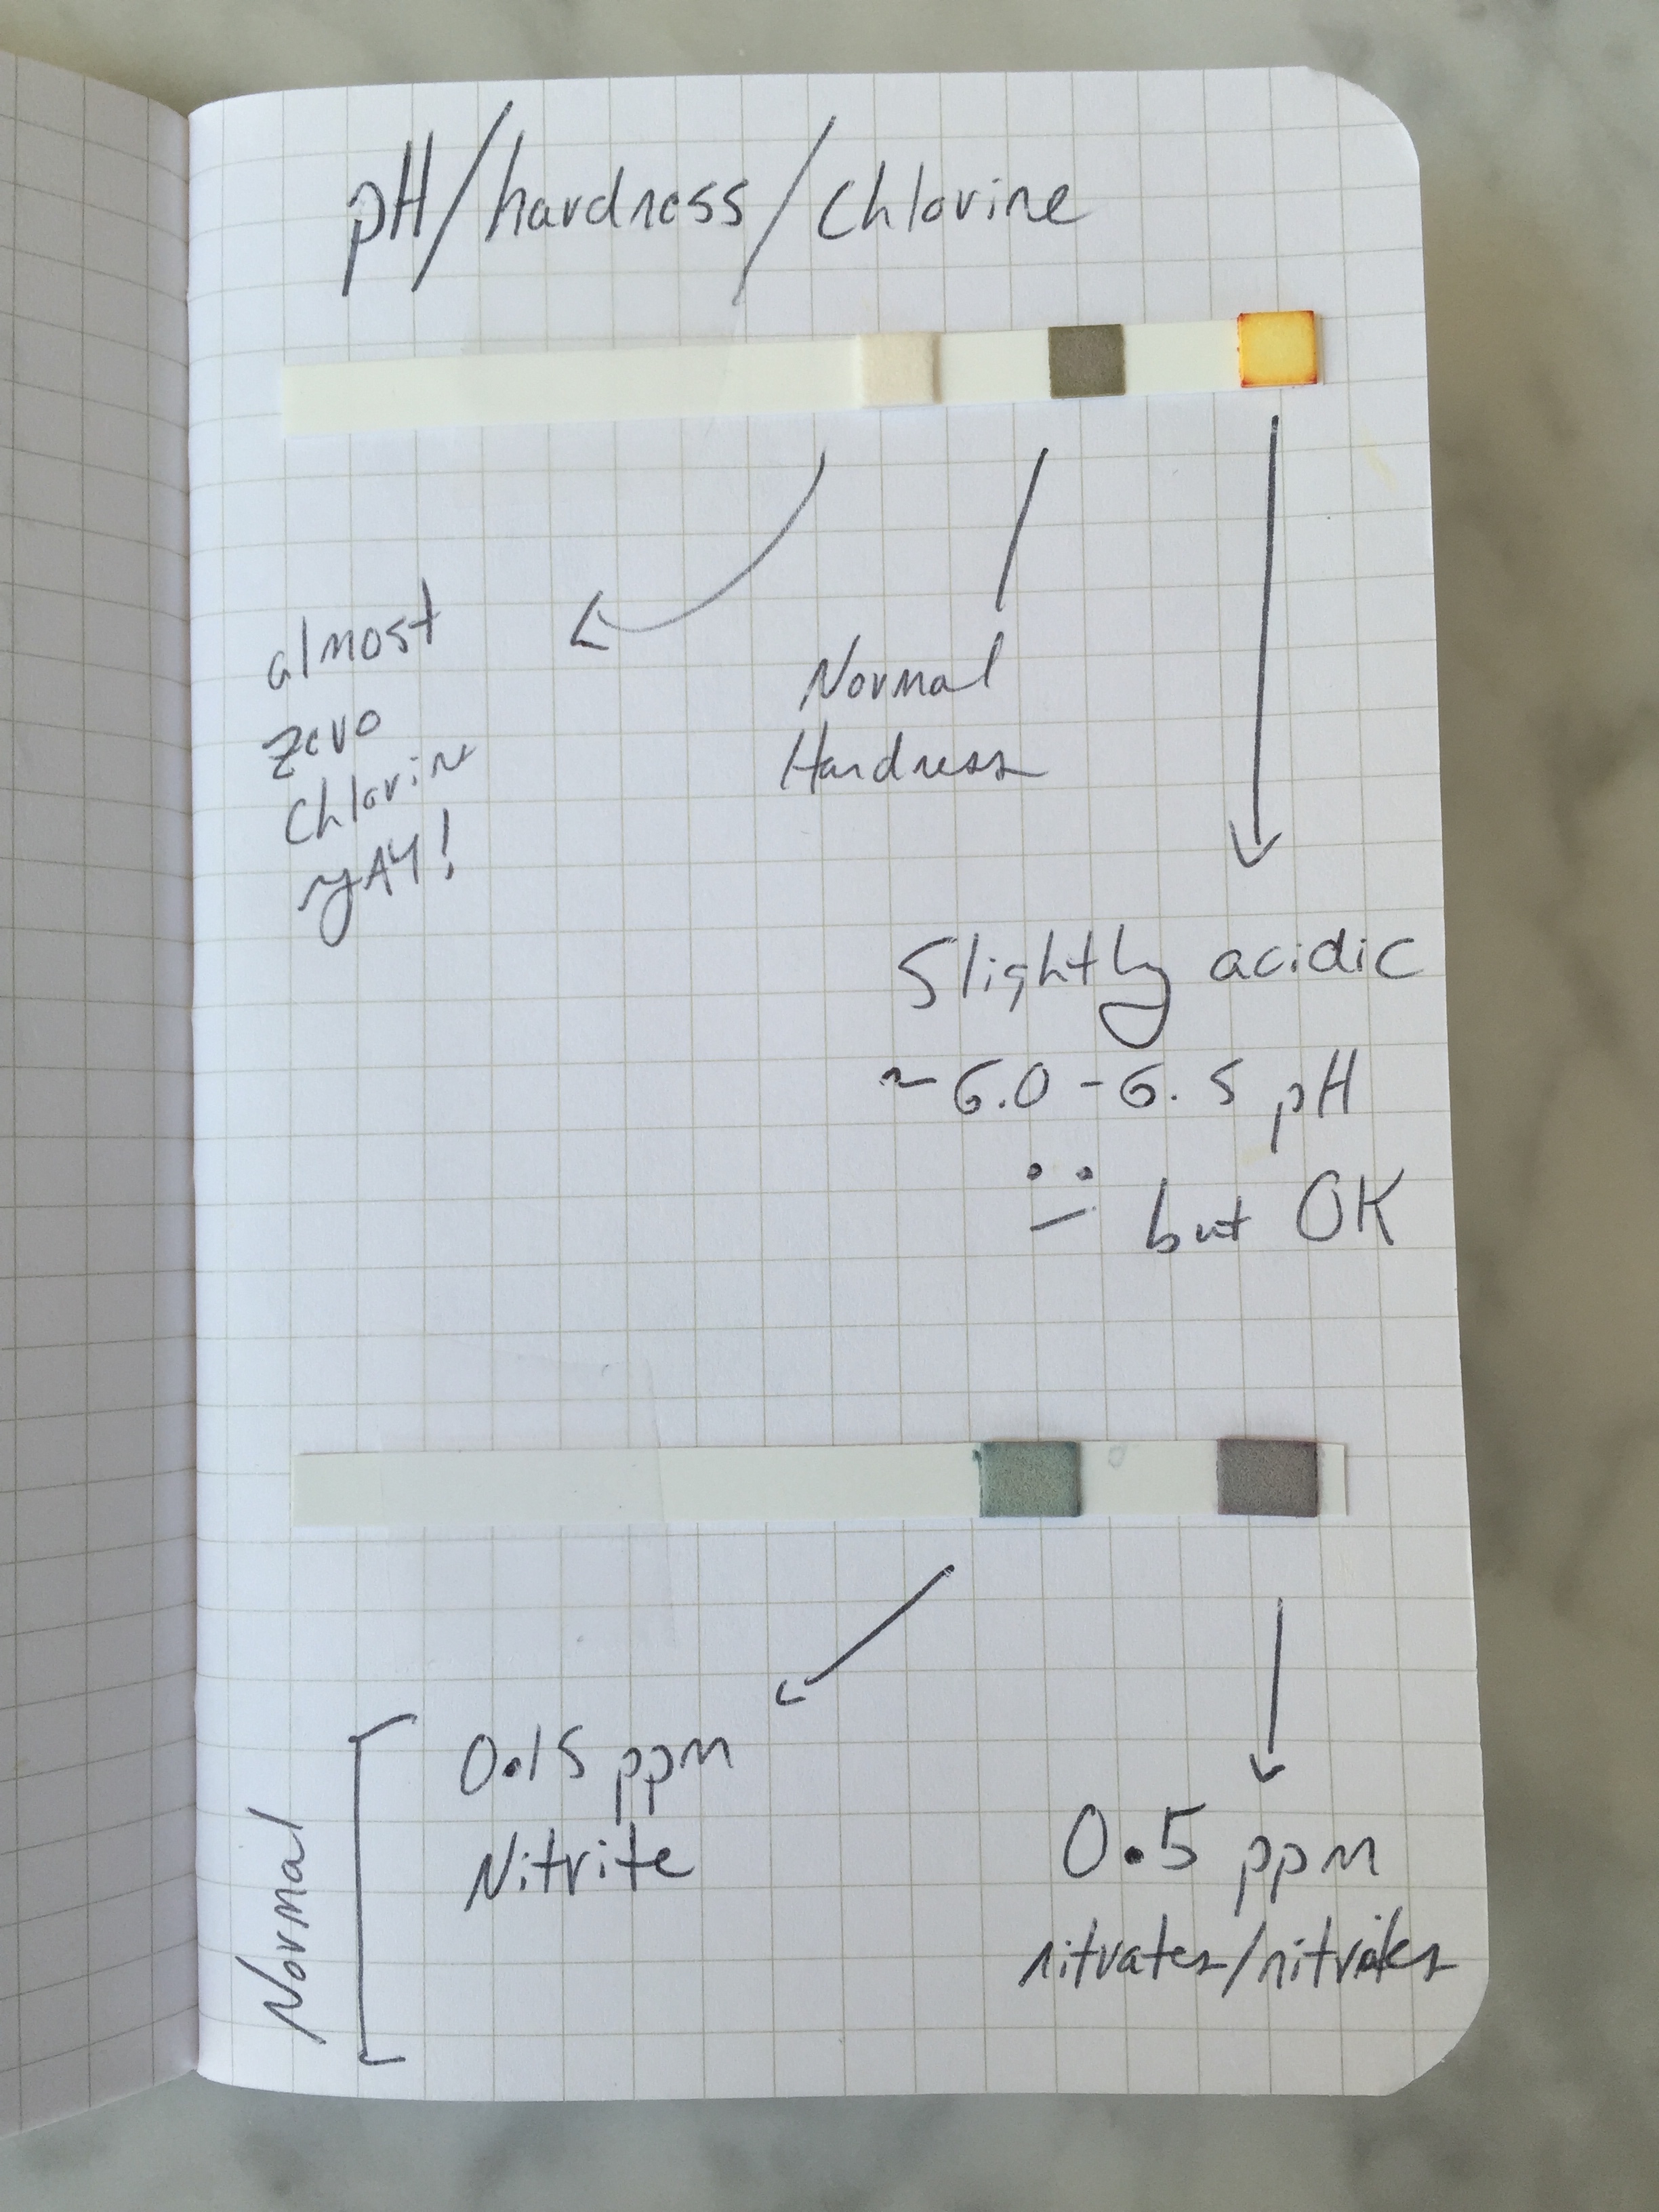 pH/hardness/chlorine
almost
zero
chlorine
yAY!
Normal
Hardness
Slightly acidic
~6.0-6.5 pH
but OK
Normal
0.15 ppm
Nitrite
0.5 ppm
nitrates/nitrites